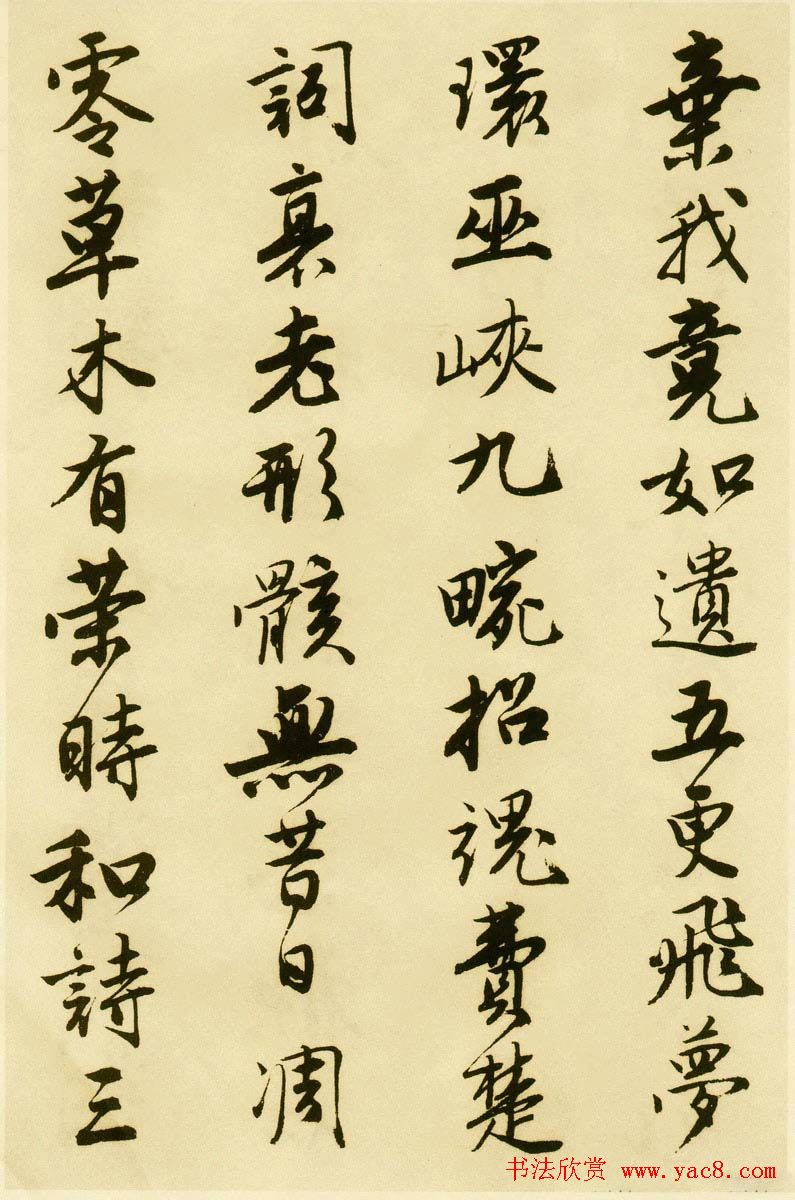 棄我竟如遺五更飛夢
環巫峽九畹招魂費楚
詞衰老形骸無昔日凋
零草木有荣時和詩三
书法欣赏 www.yac8.com